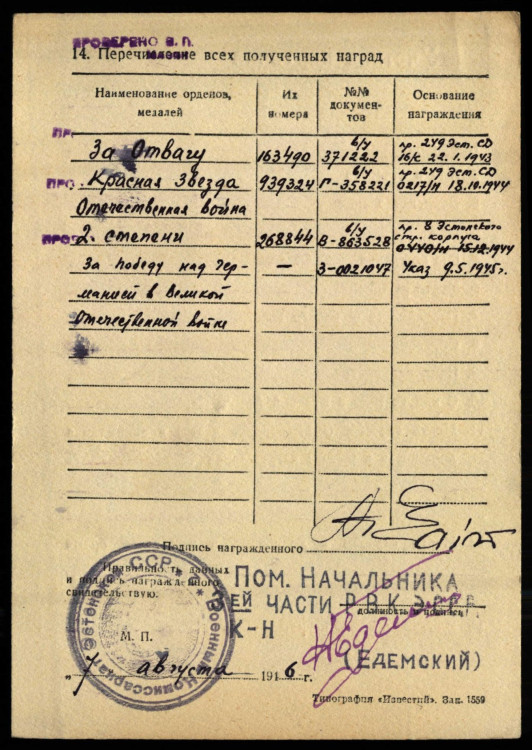 ПРОВЕРЕНО В. П.
14. Перечисление всех полученных наград
Наименование орденов, медалей | Их номера | №№ документов | Основание награждения
За Отвагу | 163490 | б/у 371222 | пр. 249 Эст. СД 16/с 22.1.1943
Красная Звезда | 939324 | б/у Г-358221 | пр. 249 Эст. СД 0217/н 18.10.1944
Отечественная война
2 степени | 268844 | б/у В-863528 | пр. 8 Эстонского стр. корпуса 0440/н 15.12.1944
За победу над Гер- | — | З-0021047 | Указ 9.5.1945г.
манией в Великой
Отечественной войне
Подпись награжденного
Правильность данных
и подпись награжденного
свидетельствую.
Пом. Начальника
ей части РВК
к-н
должность
(Едемский)
М. П.
Эстонск ССР Военный Комиссариат
„7 августа 1946 г.
Типография «Известий». Зак. 1559